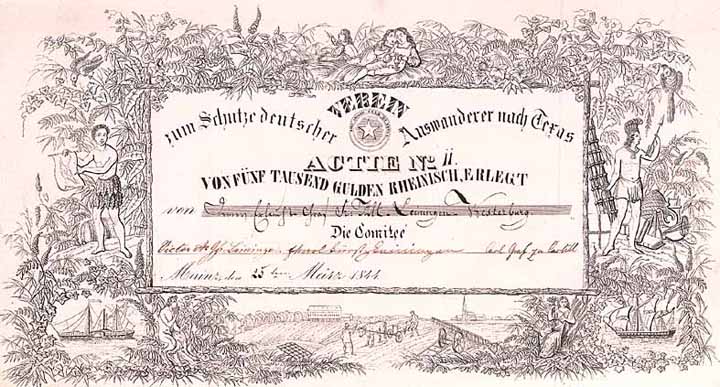 VEREIN
zum Schutze deutscher Auswanderer nach Texas
ACTIE No. 11.
VON FÜNF TAUSEND GULDEN RHEINISCH, ERLEGT
von Graf Leiningen Westerburg
Die Comitee
Carl Graf zu Castell
Mainz, den 25 ten März 1844